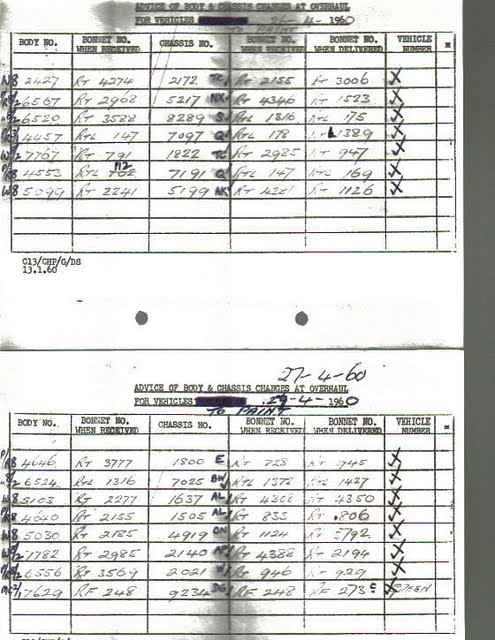 ADVICE OF BODY & CHASSIS CHANGES AT OVERHAUL
FOR VEHICLES 26-4-1960
TO PAINT
BODY NO. BONNET NO. WHEN RECEIVED CHASSIS NO. BONNET NO. WHEN RECEIVED BONNET NO. WHEN DELIVERED VEHICLE NUMBER
W8 2427 RT 4274 2172 TC RT 2155 RT 3006 X
6567 RT 2968 5217 NX RT 4346 RT 1523 X
6520 RT 3588 8289 S RTL 1316 RTL 175 X
4457 RTL 147 7097 Q RTL 178 1389 X
7767 RT 791 1822 TC RT 2985 RT 947 X
4553 RTL 112 7191 Q RTL 147 RTL 169 X
W8 5099 RT 2241 5199 AK RT RT 1126 X
C13/CHP/G/DS
13.1.60
27-4-60
ADVICE OF BODY & CHASSIS CHANGES AT OVERHAUL
FOR VEHICLES -4-1960
TO PAINT
BODY NO. BONNET NO. WHEN RECEIVED CHASSIS NO. BONNET NO. WHEN RECEIVED BONNET NO. WHEN DELIVERED VEHICLE NUMBER
4646 RT 3777 1800 E RT 728 RT 745 X
6524 RTL 1316 7025 BW RTL 1372 RTL 1427 X
W8 5103 RT 2277 1637 AL RT 4388 RT 4350 X
4640 RT 2155 1505 AL RT 835 RT 806 X
W8 5030 RT 2185 4919 ON RT 1124 RT 3792 X
7782 RT 2985 2140 AP RT 4388 RT 2194 X
6556 RT 3569 2021 W RT 946 RT 929 X
7629 RF 248 9234 DG RF 248 RF 273 X GREEN